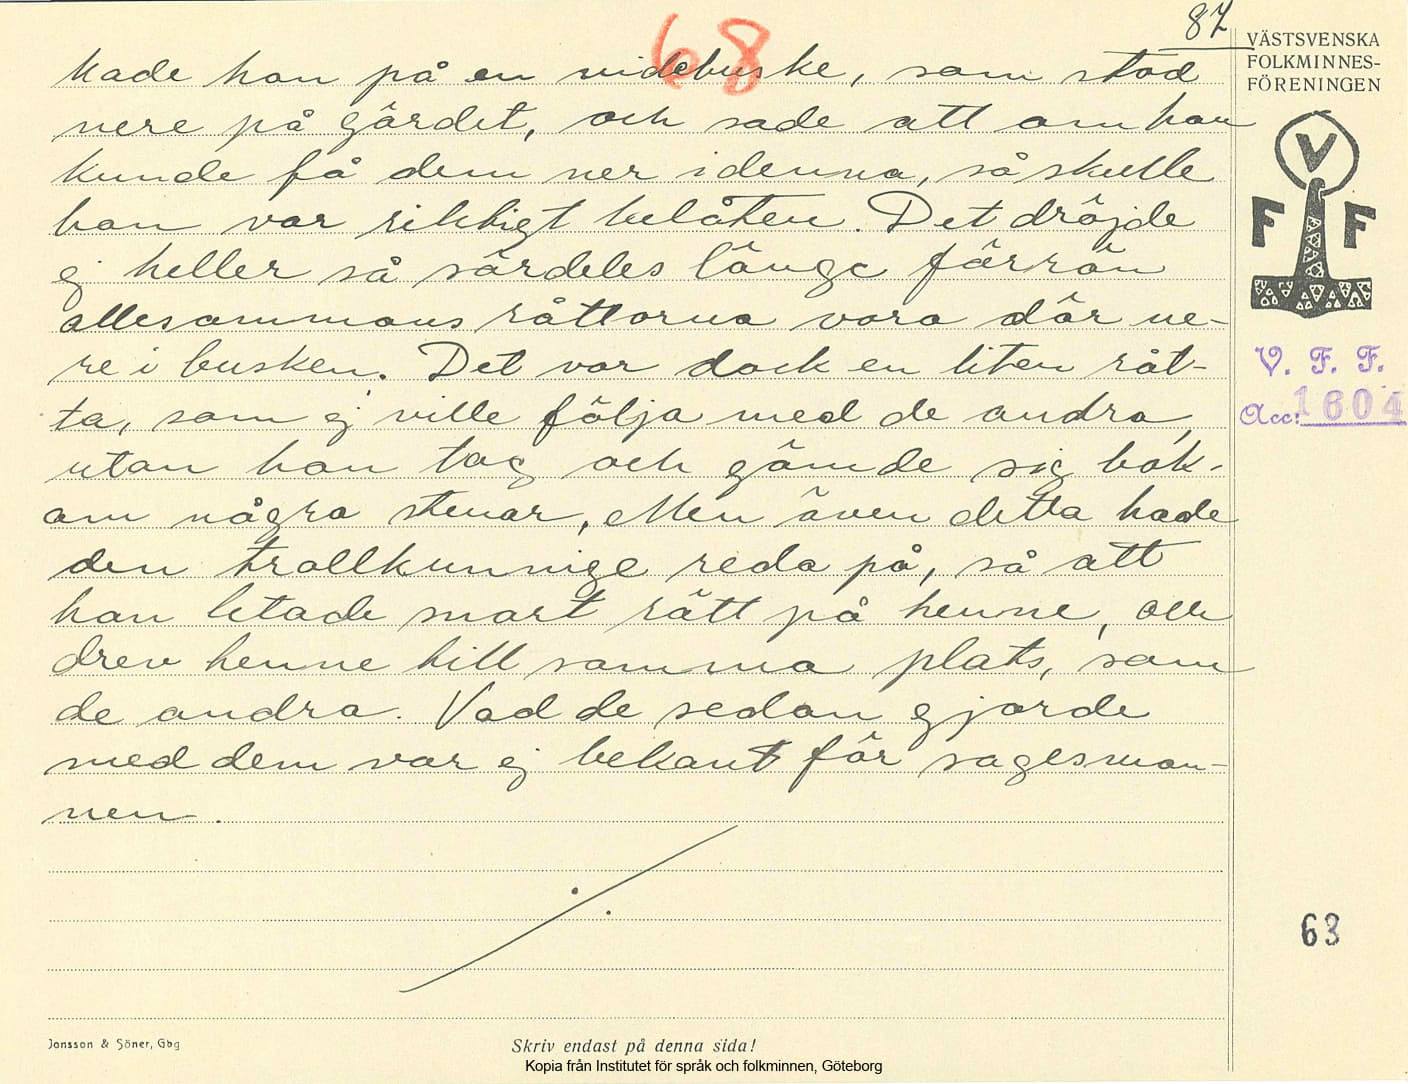 87
68
kade han på en videbuske, som stod
nere på gärdet, och sade att om han
kunde få dem ner i denna, så skulle
han var riktigt belåten. Det dröjde
ej heller så särdeles länge förrän
allesammans råttorna voro där ne-
re i busken. Det var dock en liten råt-
ta, som ej ville följa med de andra,
utan han tog och gömde sig bak-
om några stenar, Men även detta hade
den trollkunnige reda på, så att
han letade snart rätt på henne, och
drev henne till samma plats, som
de andra. Vad de sedan gjorde
med dem var ej bekant för sagesman-
nen.
VÄSTSVENSKA
FOLKMINNES-
FÖRENINGEN
V
F F
V. F. F.
Acc: 1604
63
Jonsson & Söner, Gbg
Skriv endast på denna sida!
Kopia från Institutet för språk och folkminnen, Göteborg